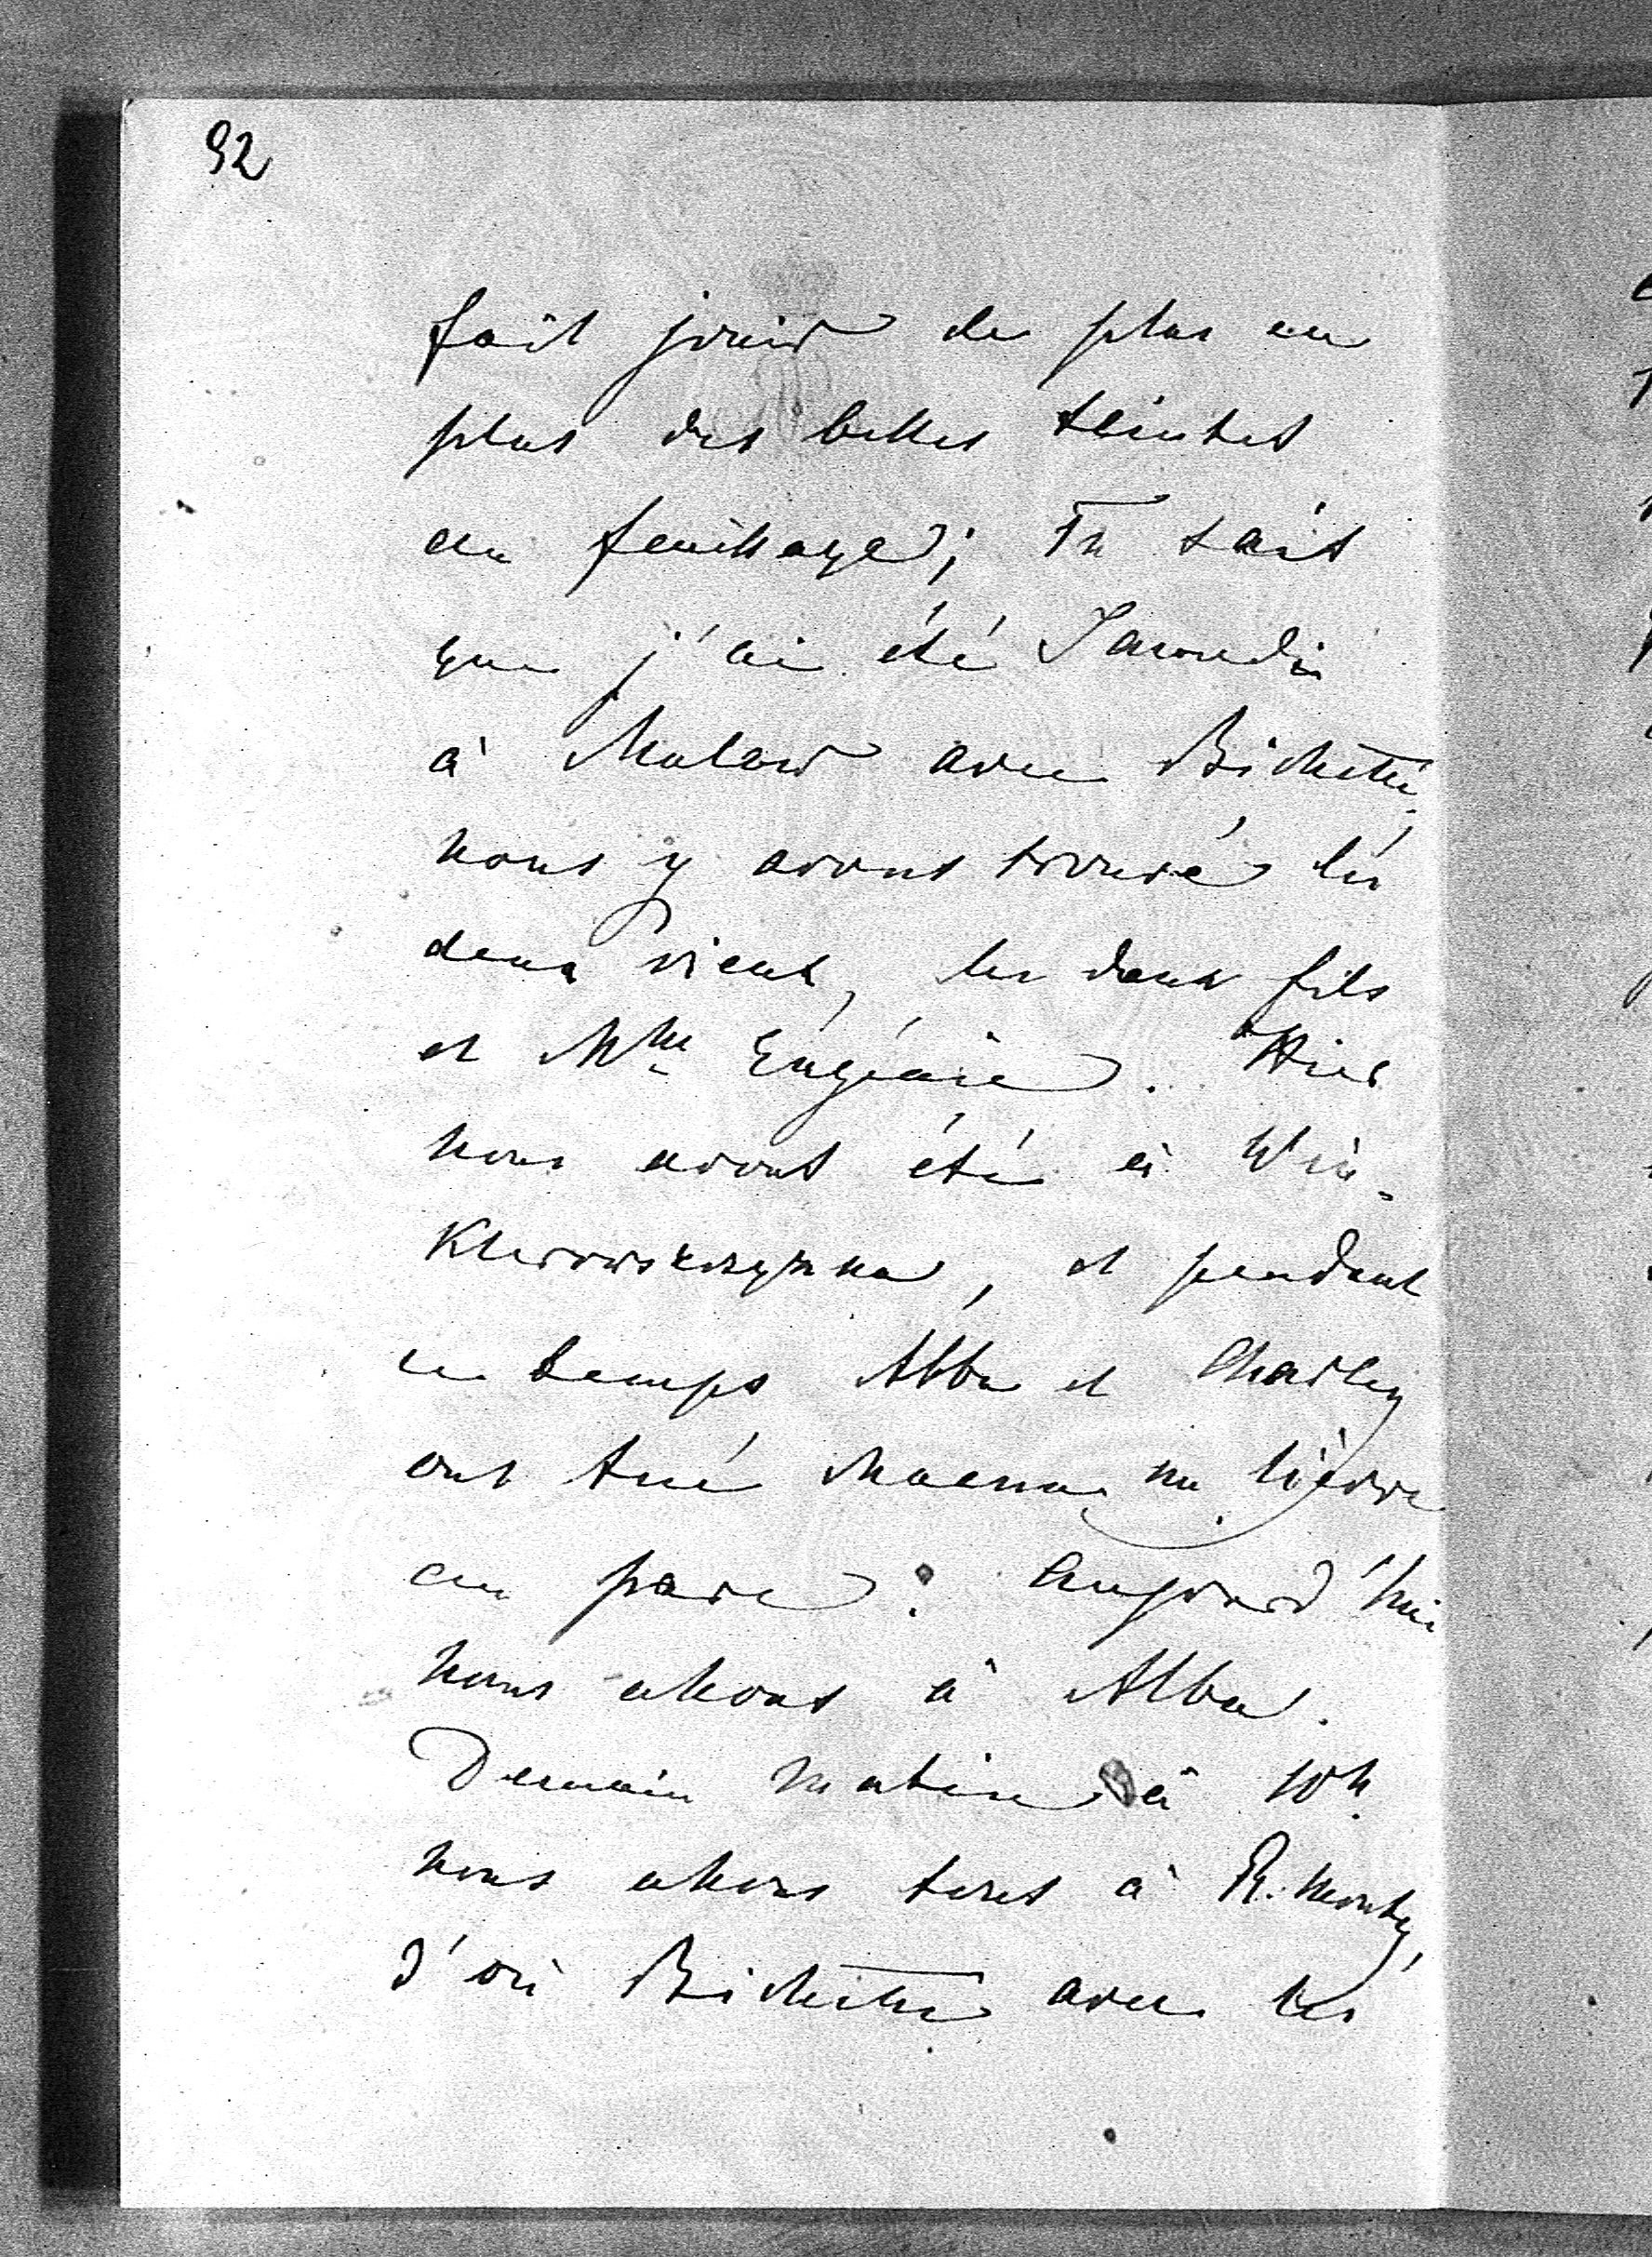 92
fait jouir de plus en
plus des belles teintes
du feuillage; Tu sais
que j'ai été Samedi
à Malaw avec Bichette,
nous y avons trouvé les
deux vieux, les deux fils
et Mme Eugénie. Hier
nous avons été à Win-
et pendant
ce temps Abbe et Charley
ont tué chacun un lièvre
au parc. Aujourd'hui
nous allons à Alba.
Demain matin à 10h
nous allons tous à R. monty,
d'où Bichette avec les